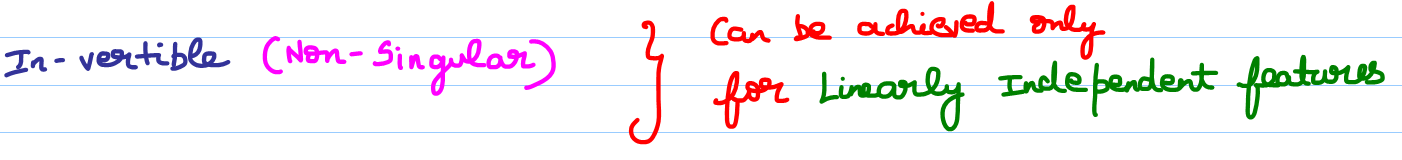 In-vertible (Non-Singular) } Can be achieved only
for Linearly Independent features